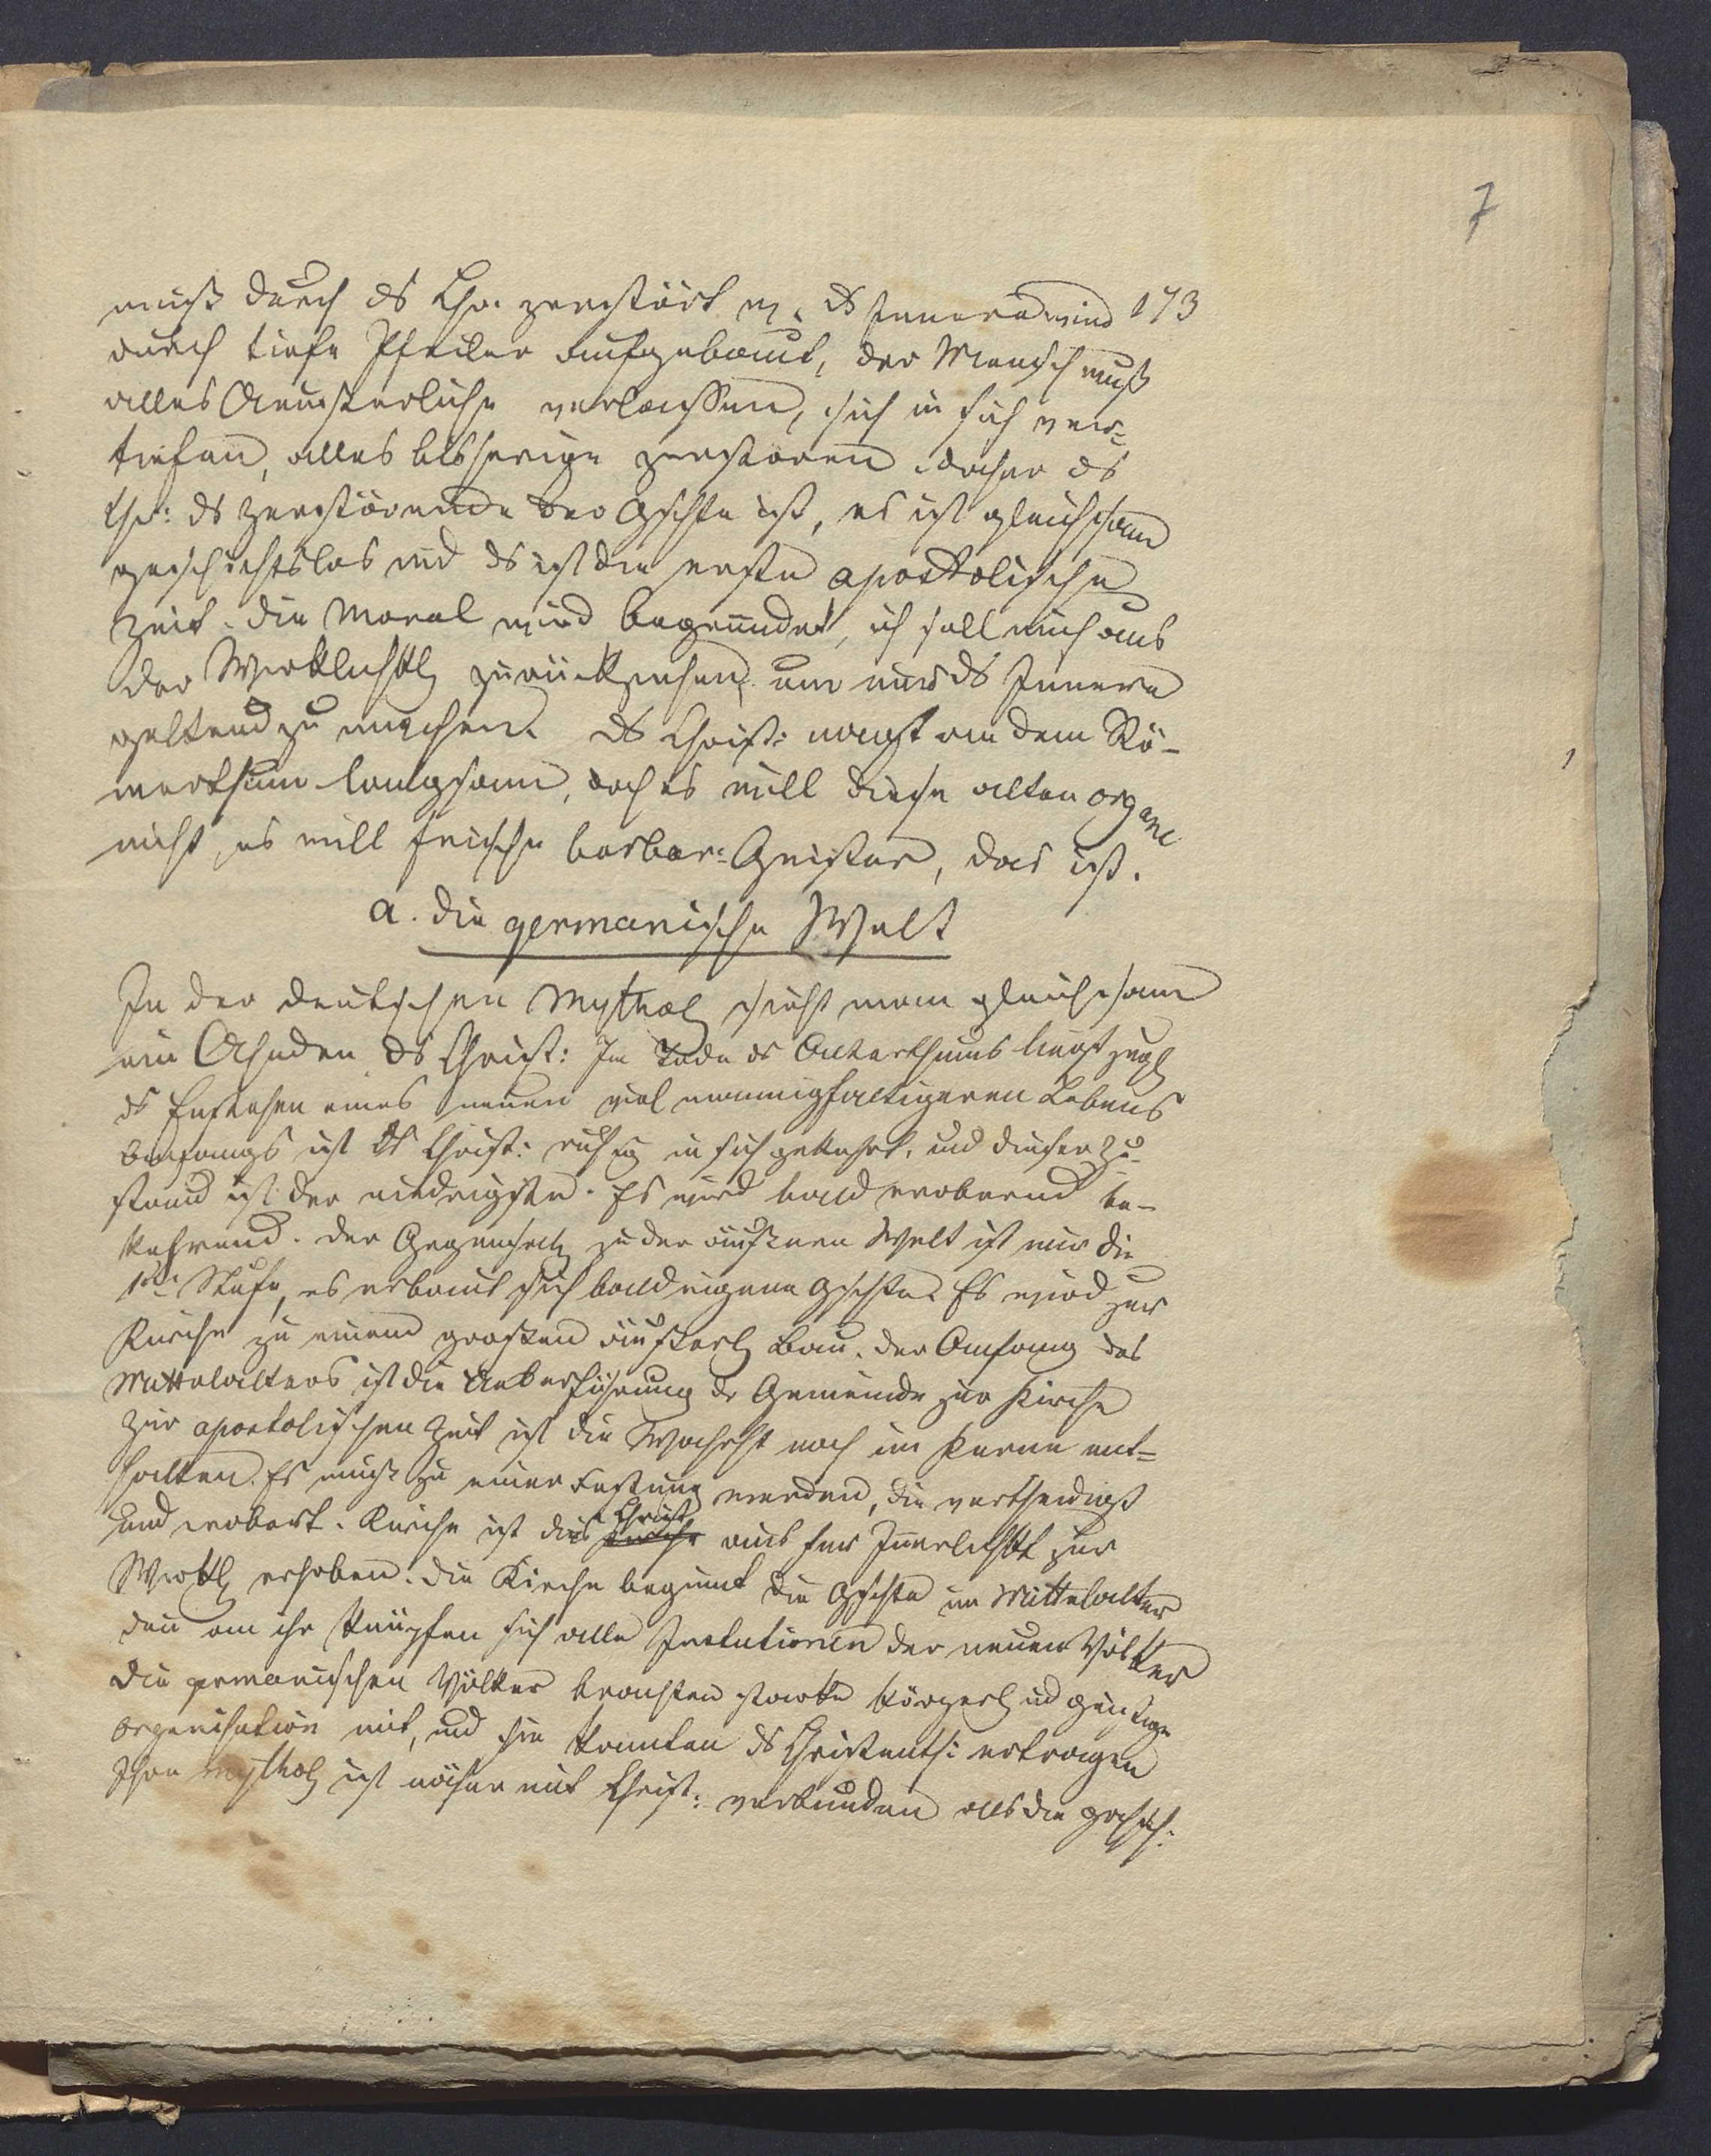 7
muß durch ds Chr. zerstört w. ds Innere wird 173
durch tiefe Pfeiler aufgebaut, der Mensch muß
alles Aeußerliche verlassen, sich in sich ver=
tiefen, alles bisherige zerstören daher ds
Chr: ds zerstörende der Gschte ist, es ist gleichsam
geschichtslos und ds ist die erste apostolische
Zeit. die Moral wird begründet, ich soll mich aus
der Wirklichktl zurückziehen, um nur ds Innere
geltend zu machen. ds Christ: nagt an dem Rö-
merthum langsam, doch es will diese alten organe
nicht, es will frische barbar: Geister, das ist.
a. die germanische Welt
In der deutschen Mythol sieht man gleichsam
ein Ahnden ds Christ: Im Tode ds Alterthums liegt zugl
ds Entstehen eines neuen viel mannigfaltigeren Lebens
Anfangs ist ds Christ: ruhig in sich gekehrt, und dieser Zu-
stand ist der niedrigste. Es wird bald erobernd be-
kehrend. der Gegensatz zu der äußeren Welt ist nur die
1ste Stufe, es erbaut sich bald eigene Gschte. Es wird zur
Kirche zu einem großen äußerl Bau. der Anfang des
Mittelalters ist die Ueberführung dr Gemeinde zur Kirche
Zur apostolischen Zeit ist die Wahrht noch im Kerne ent=
halten. Es muß zu einer Festung werden, die vertheidigt
und erobert. Kirche ist dies Christ aus der Innerlichkt zur
Wirkl erhoben. die Kirche beginnt die Gschte im Mittelalter
den an ihr knüpfen sich alle Instutionen der neuen Völker
die germanischen Völker brachten starke körperl und geistige
organisation mit, und sie konnten ds Christenth: ertragen
Ihre Mythol ist näher mit Christ: verbunden als die griech: